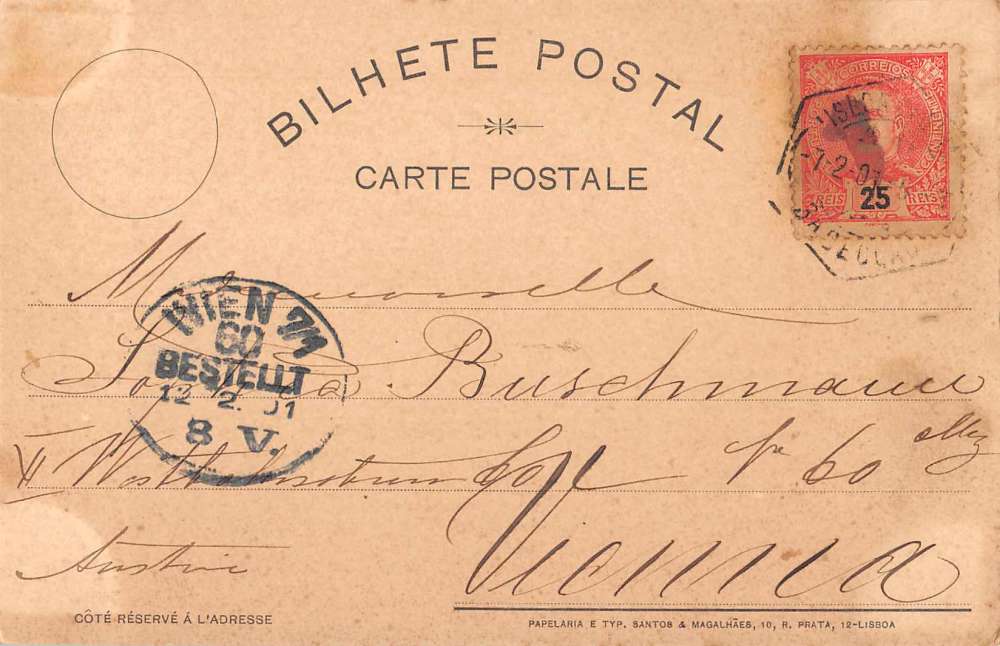 BILHETE POSTAL
CARTE POSTALE
CORREIOS
REIS 25 REIS
LISBOA
-1-2-01
Mademoiselle
WIEN 7/1
60
BESTELLT
12 2. 01
8 V.
Sophia Buschmann
60 № 60
Austria
Vienna
CÔTÉ RÉSERVÉ Á L'ADRESSE
PAPELARIA E TYP. SANTOS & MAGALHÃES, 10, R. PRATA, 12-LISBOA